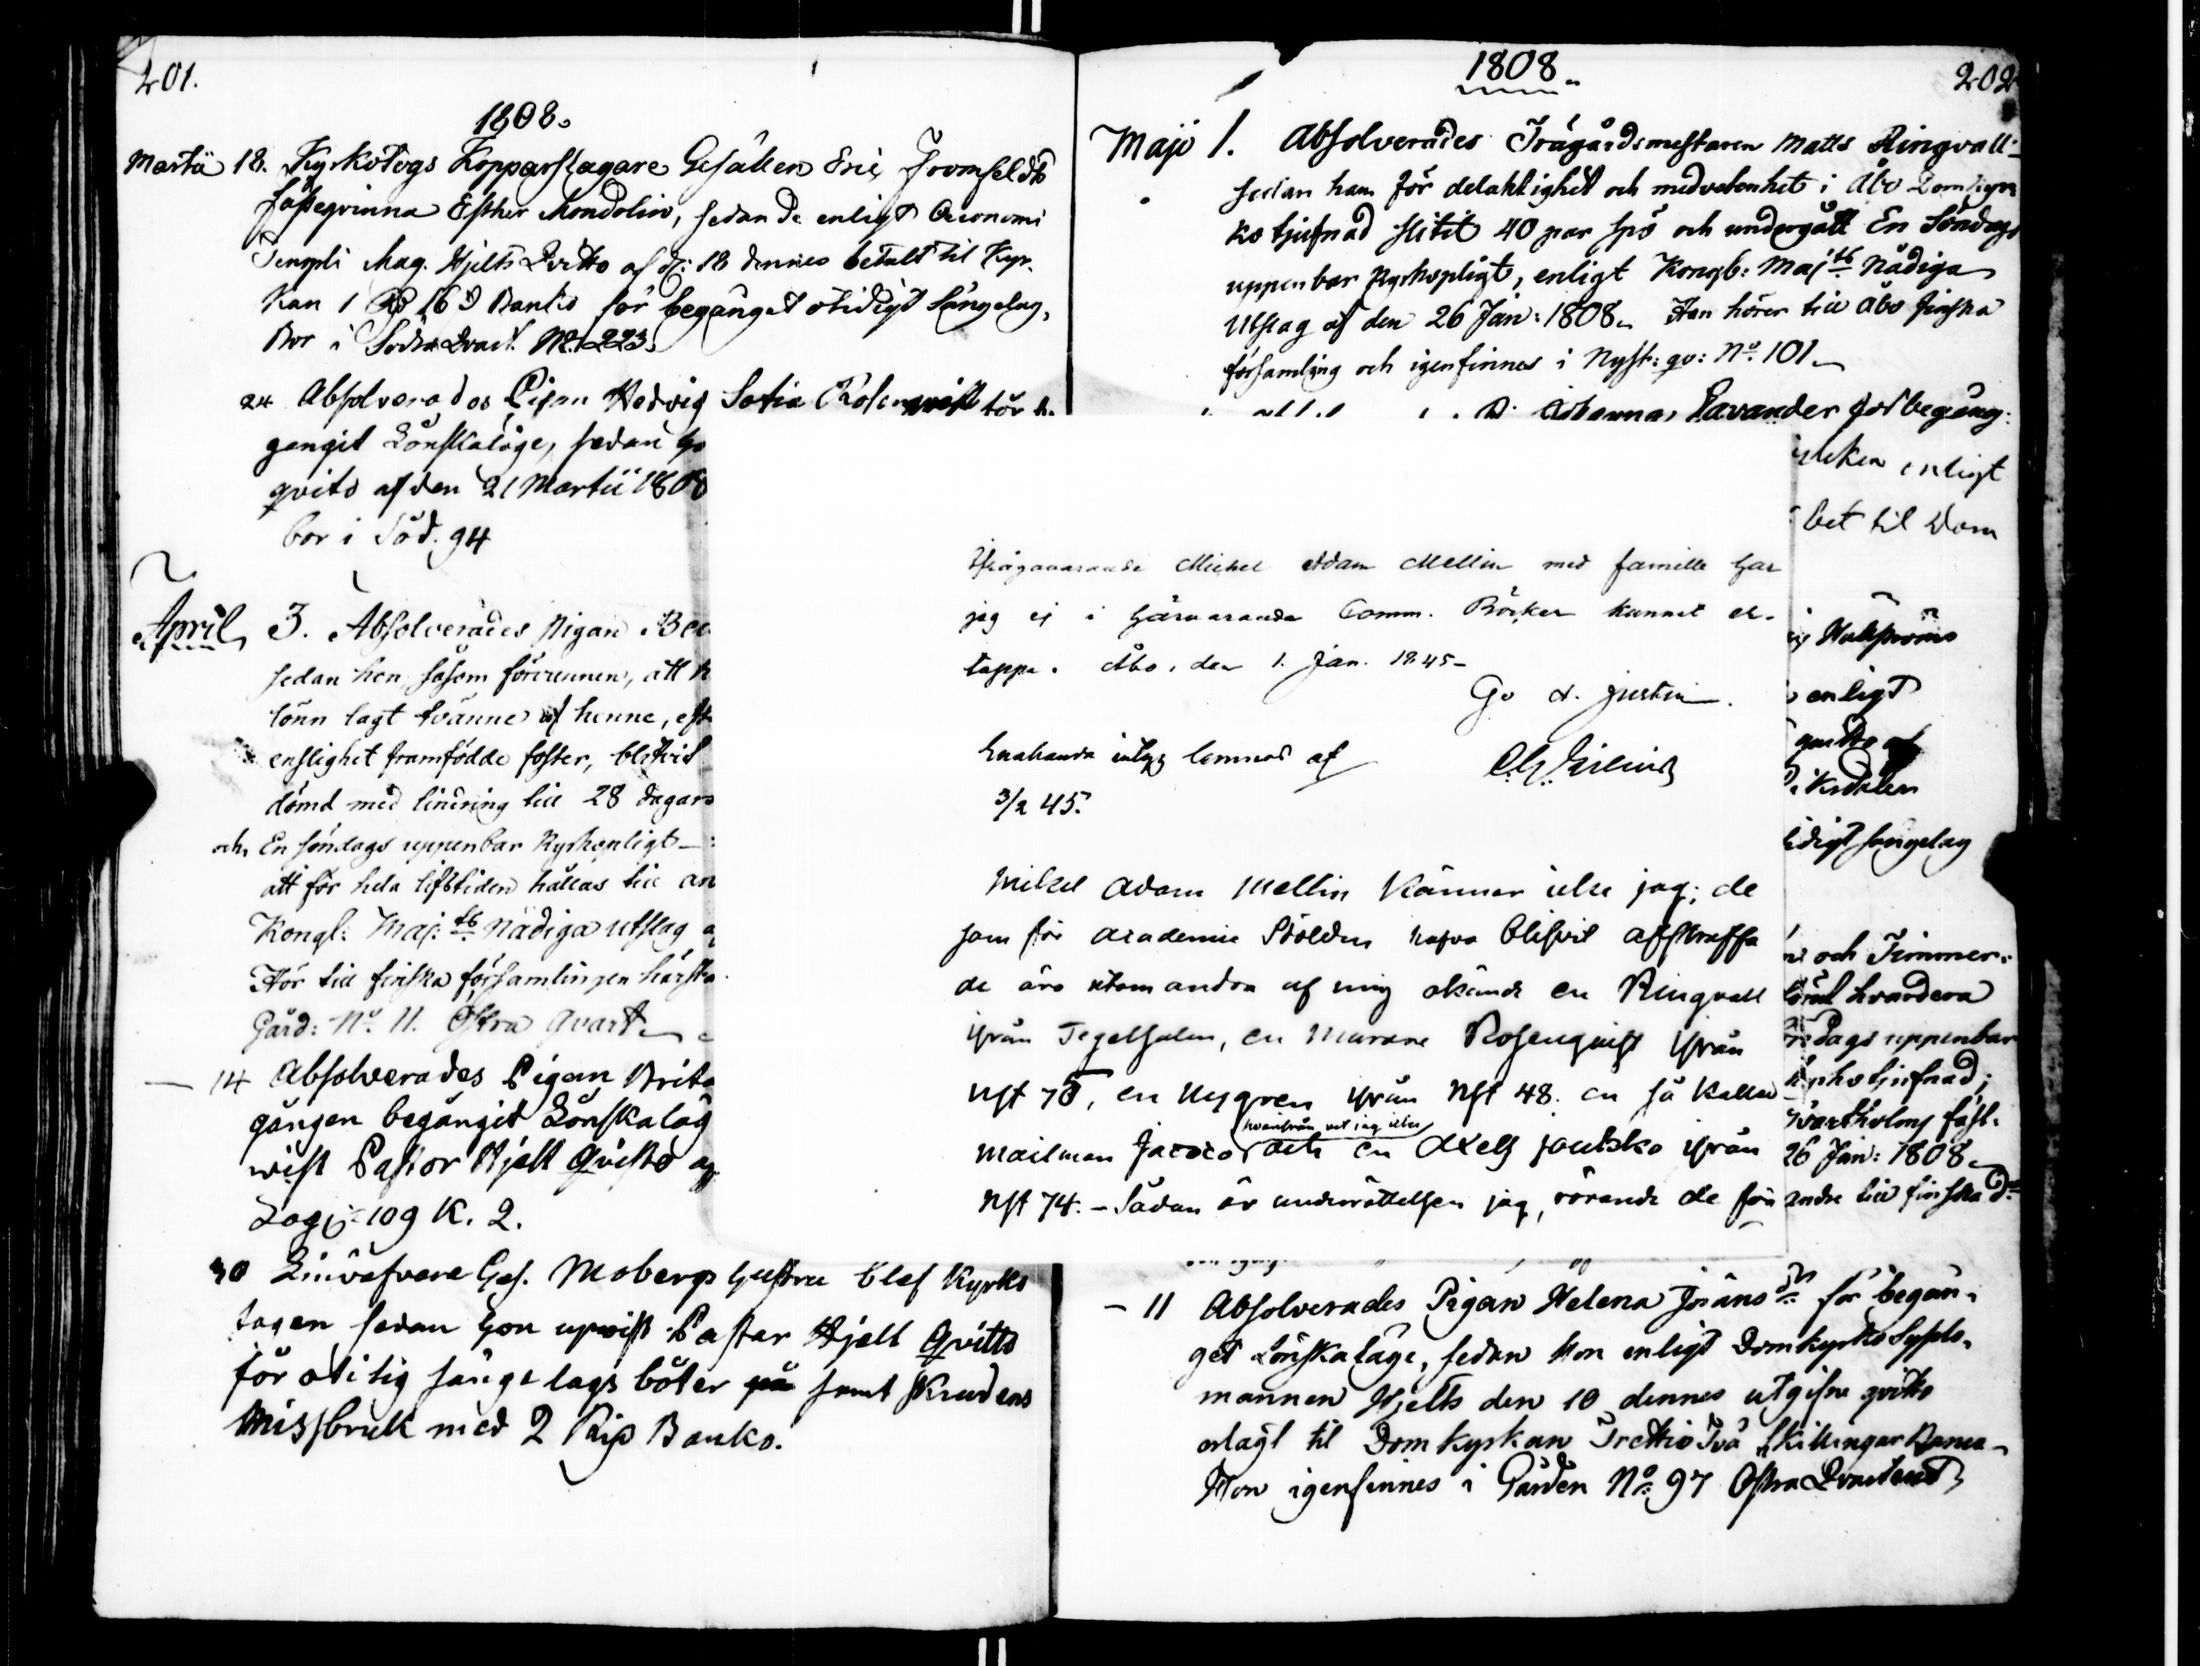 201.
1808.
Martii 18. Kyrkotogs Kopparslagare Gesällen Eric Fromfeldts
fästeqvinna Esther Mondolin, sedan de enligt Oeconomi
Templi Mag. Hjelts Qvitto af d: 18 dennes betalt til Kyr-
kan 1 Rd 16 s Banko för begånget otidigt Sängelag,
Bor i Södra Qvart. No. 223.
24 Absolverades Pigan Hedvig Sofia Rosenqvist för be-
gångit Lönskaläge, sedan ho
qvito af den 21 Martii 1808
bor i Söd. 94
April 3. Absolverades Pigan Be
sedan hon såsom förvunnen, att
lönn lagt tvänne af henne, eft
enslighet framfödde foster, blifvit
dömd med lindring till 28 dagars
och En söndags uppenbar Kyrkopligt
att för hela lifstiden hållas till
Kongl: Maj:ts Nådiga utslag
Hör till finska församlingen härsta
Gård: No. 11. Östra Qvart
- 14 Absolverades Pigan Brita
gången begångit Lönskaläg
wist Pastor Hjelt Qvitto
Log. 109 K. 2.
30 Linväfvare Ges. Mobergs hustru blef Kyrko
tagen sedan hon upwist Pastor Hjelt Qvitto
för otitig sängelags böter på samt Skrudens
Missbruk med 2 Rip Banko.
1808.
202
Maji 1. Absolverades Trägårdsmestaren Matts Ringvall
sedan han för delaktighet och medvetenhet i Åbo Domkyr
ko tjufnad slitit 40 par spö och undergått En Söndags
uppenbar Kyrkopligt, enligt Kongl: Maj:ts Nådiga
Utslag af den 26 Jan: 1808. Han hörer till Åbo finska
församling och igenfinnes i Nyst: qv: No. 101
Johanna Lavander för begång:
enligt
bet til Dom
Ifrågavarande Michel Adam Mellin med famille har
jag ej i härvarande Comm. Böcker kunnat er-
tappa. Åbo, den 1. Jan. 1845-
G. A. Justin.
Enahanda intyg lemnas af
3/2 45.
Mikel Adam Mellin känner icke jag; de
som för academie Stölden hafva blifvit afstraffa
de äro utom andra af mig okände en Ringvall
ifrån Tegelsalen, en Murare Rosenquist ifrån
Nst 70, en Nygren ifrån Nst 48. en så kallad
hvarifrån vet jag icke
Mailman Jacob och en Axels Joutsko ifrån
Nst 74. - Sådan är underrättelsen jag, rörande de för
enligt
qvitto af
Riksdaler
tidigt sängelag
och Timmer-
hvardera
dags uppenbar
kyrkotjufnad;
Svartholms fäst-
26 Jan: 1808
andre till finska
- 11 Absolverades Pigan Helena Jöransdr för begån-
get Lönskaläge, sedan Hon enligt Domkyrko Syslo-
mannen Hjelts den 10 dennes utgifne qvitto
erlagt til Domkyrkan Trettio Två Skillingar Banco
Hon igenfinnes i Gården No. 97 Östra Qvarteret